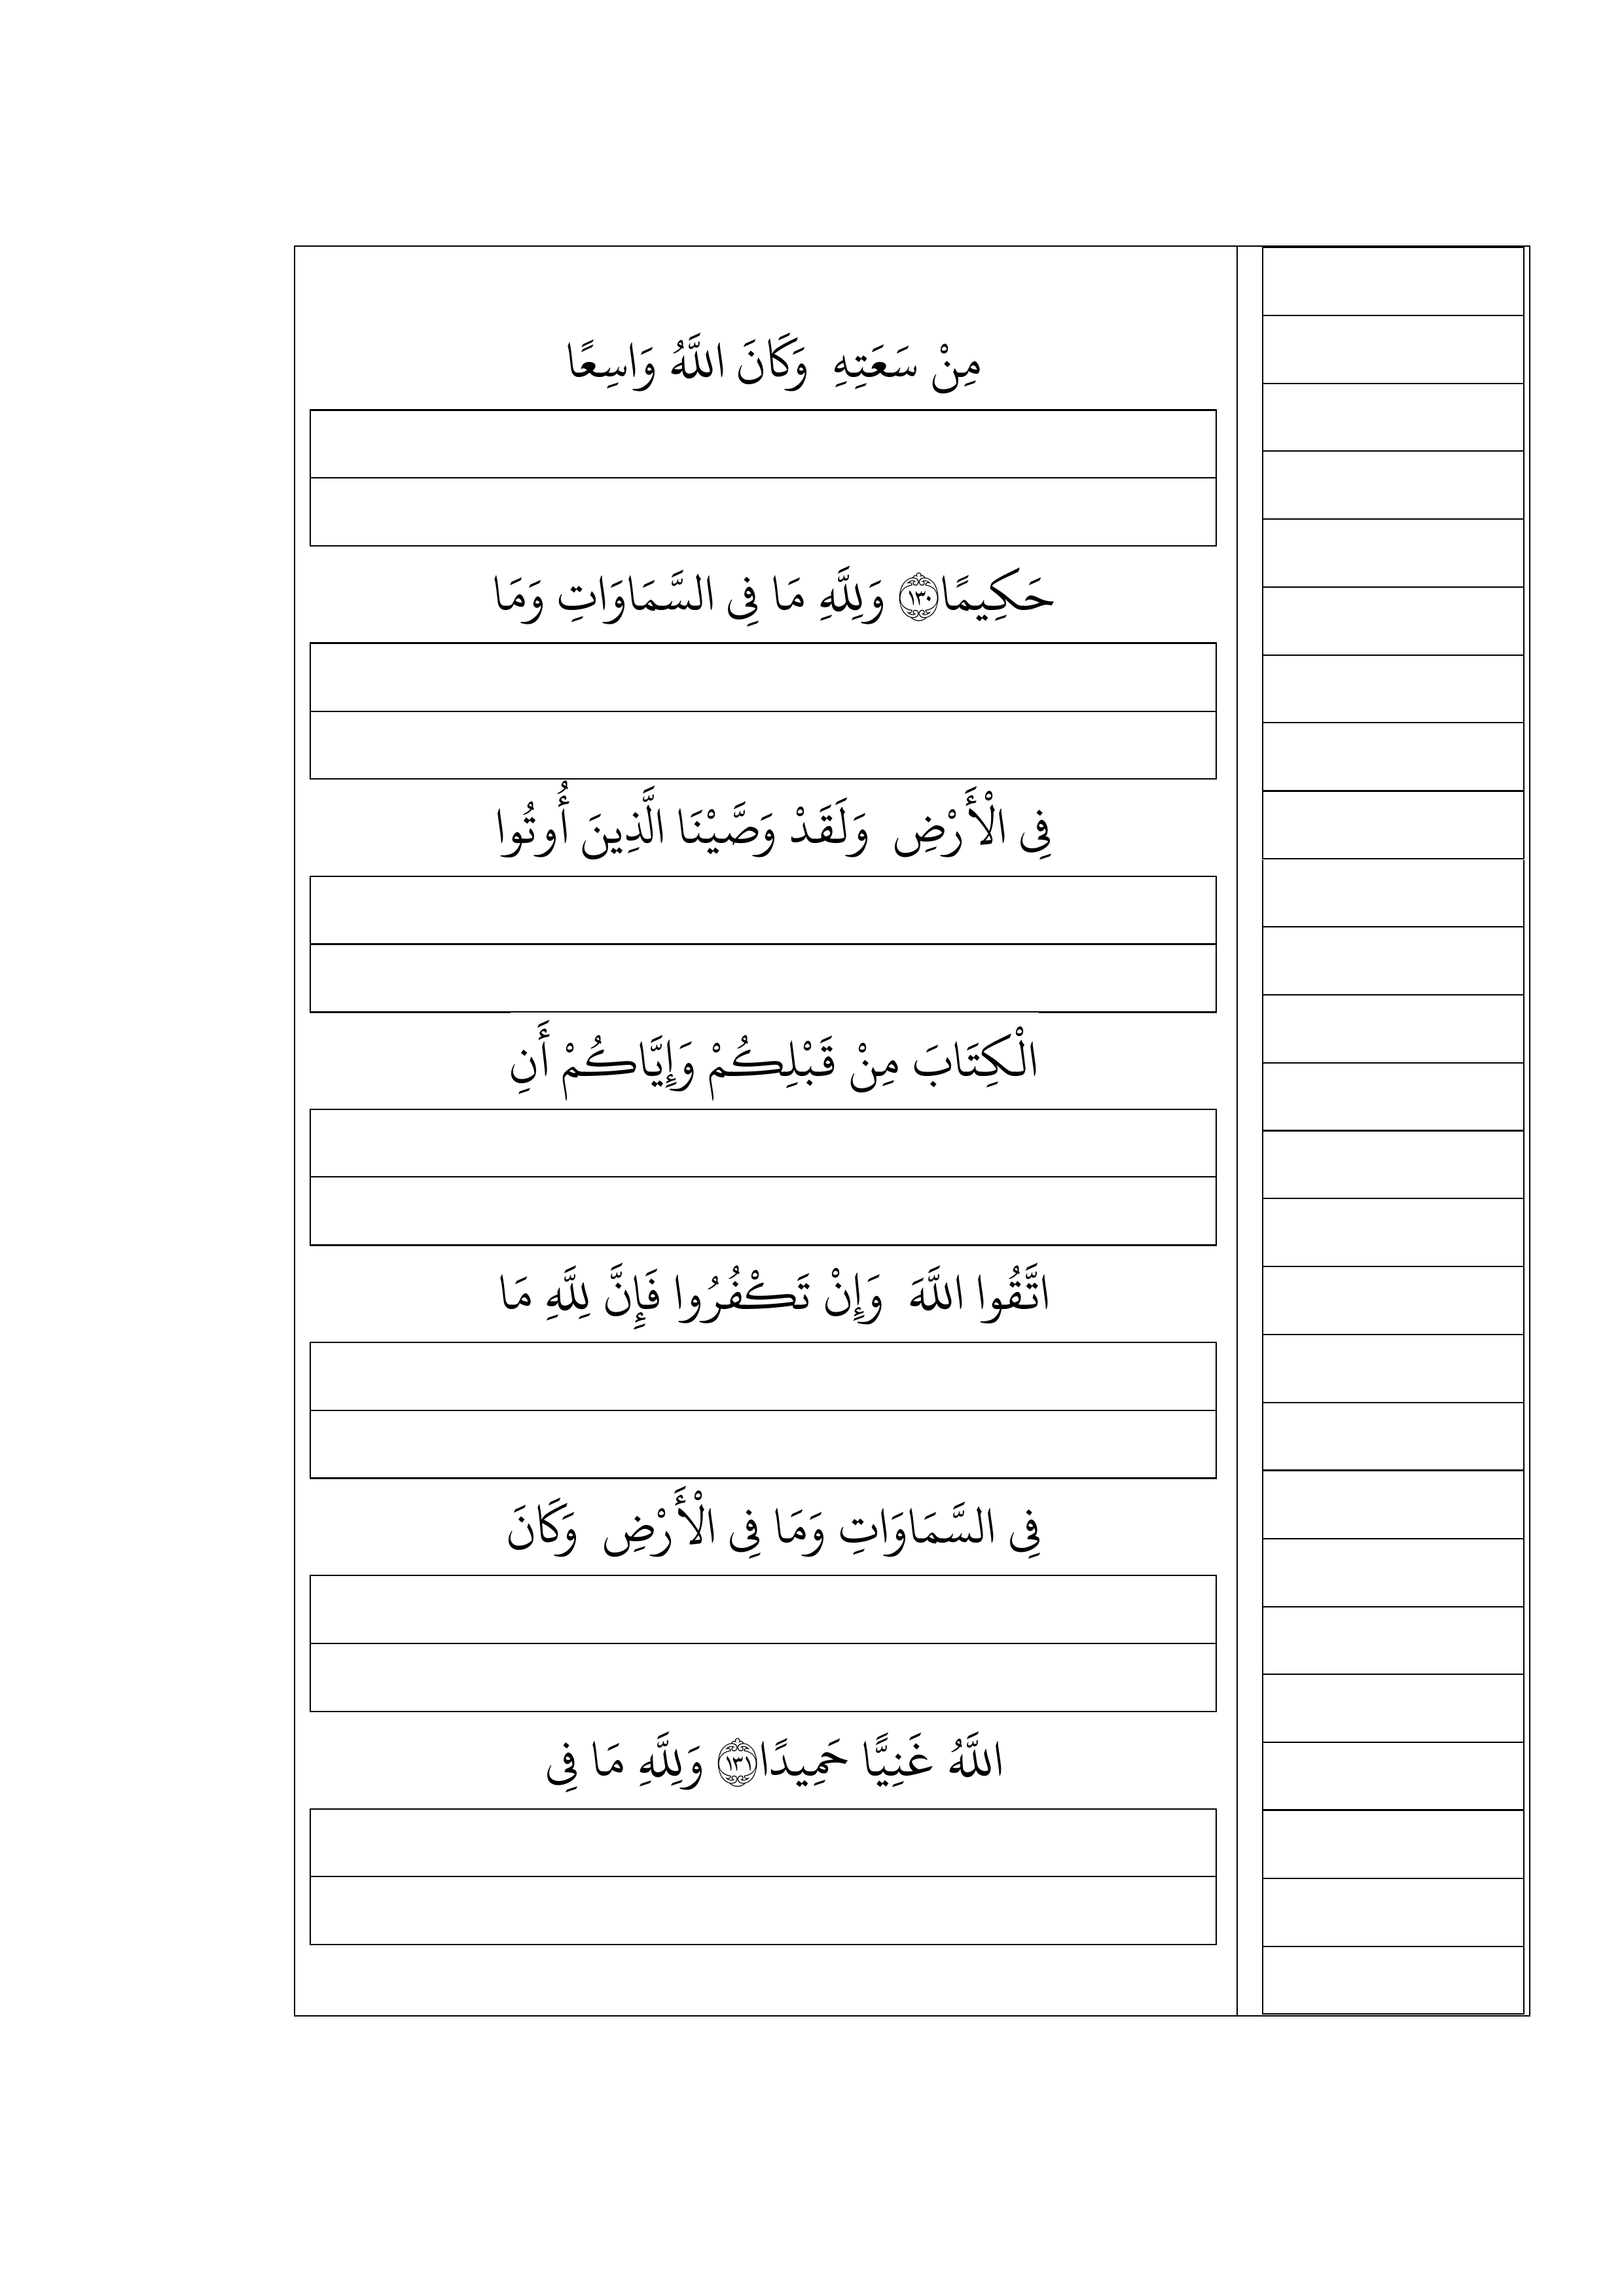 مِنْ سَعَتِهِ وَكَانَ اللَّهُ وَاسِعًا
حَكِيمًا ﴿١٣٠﴾ وَلِلَّهِ مَا فِى السَّمَاوَاتِ وَمَا
فِى الْأَرْضِ وَلَقَدْ وَصَّيْنَا الَّذِينَ أُوتُوا
الْكِتَابَ مِنْ قَبْلِكُمْ وَإِيَّاكُمْ أَنِ
اتَّقُوا اللَّهَ وَإِنْ تَكْفُرُوا فَإِنَّ لِلَّهِ مَا
فِى السَّمَاوَاتِ وَمَا فِى الْأَرْضِ وَكَانَ
اللَّهُ غَنِيًّا حَمِيدًا ﴿١٣١﴾ وَلِلَّهِ مَا فِى